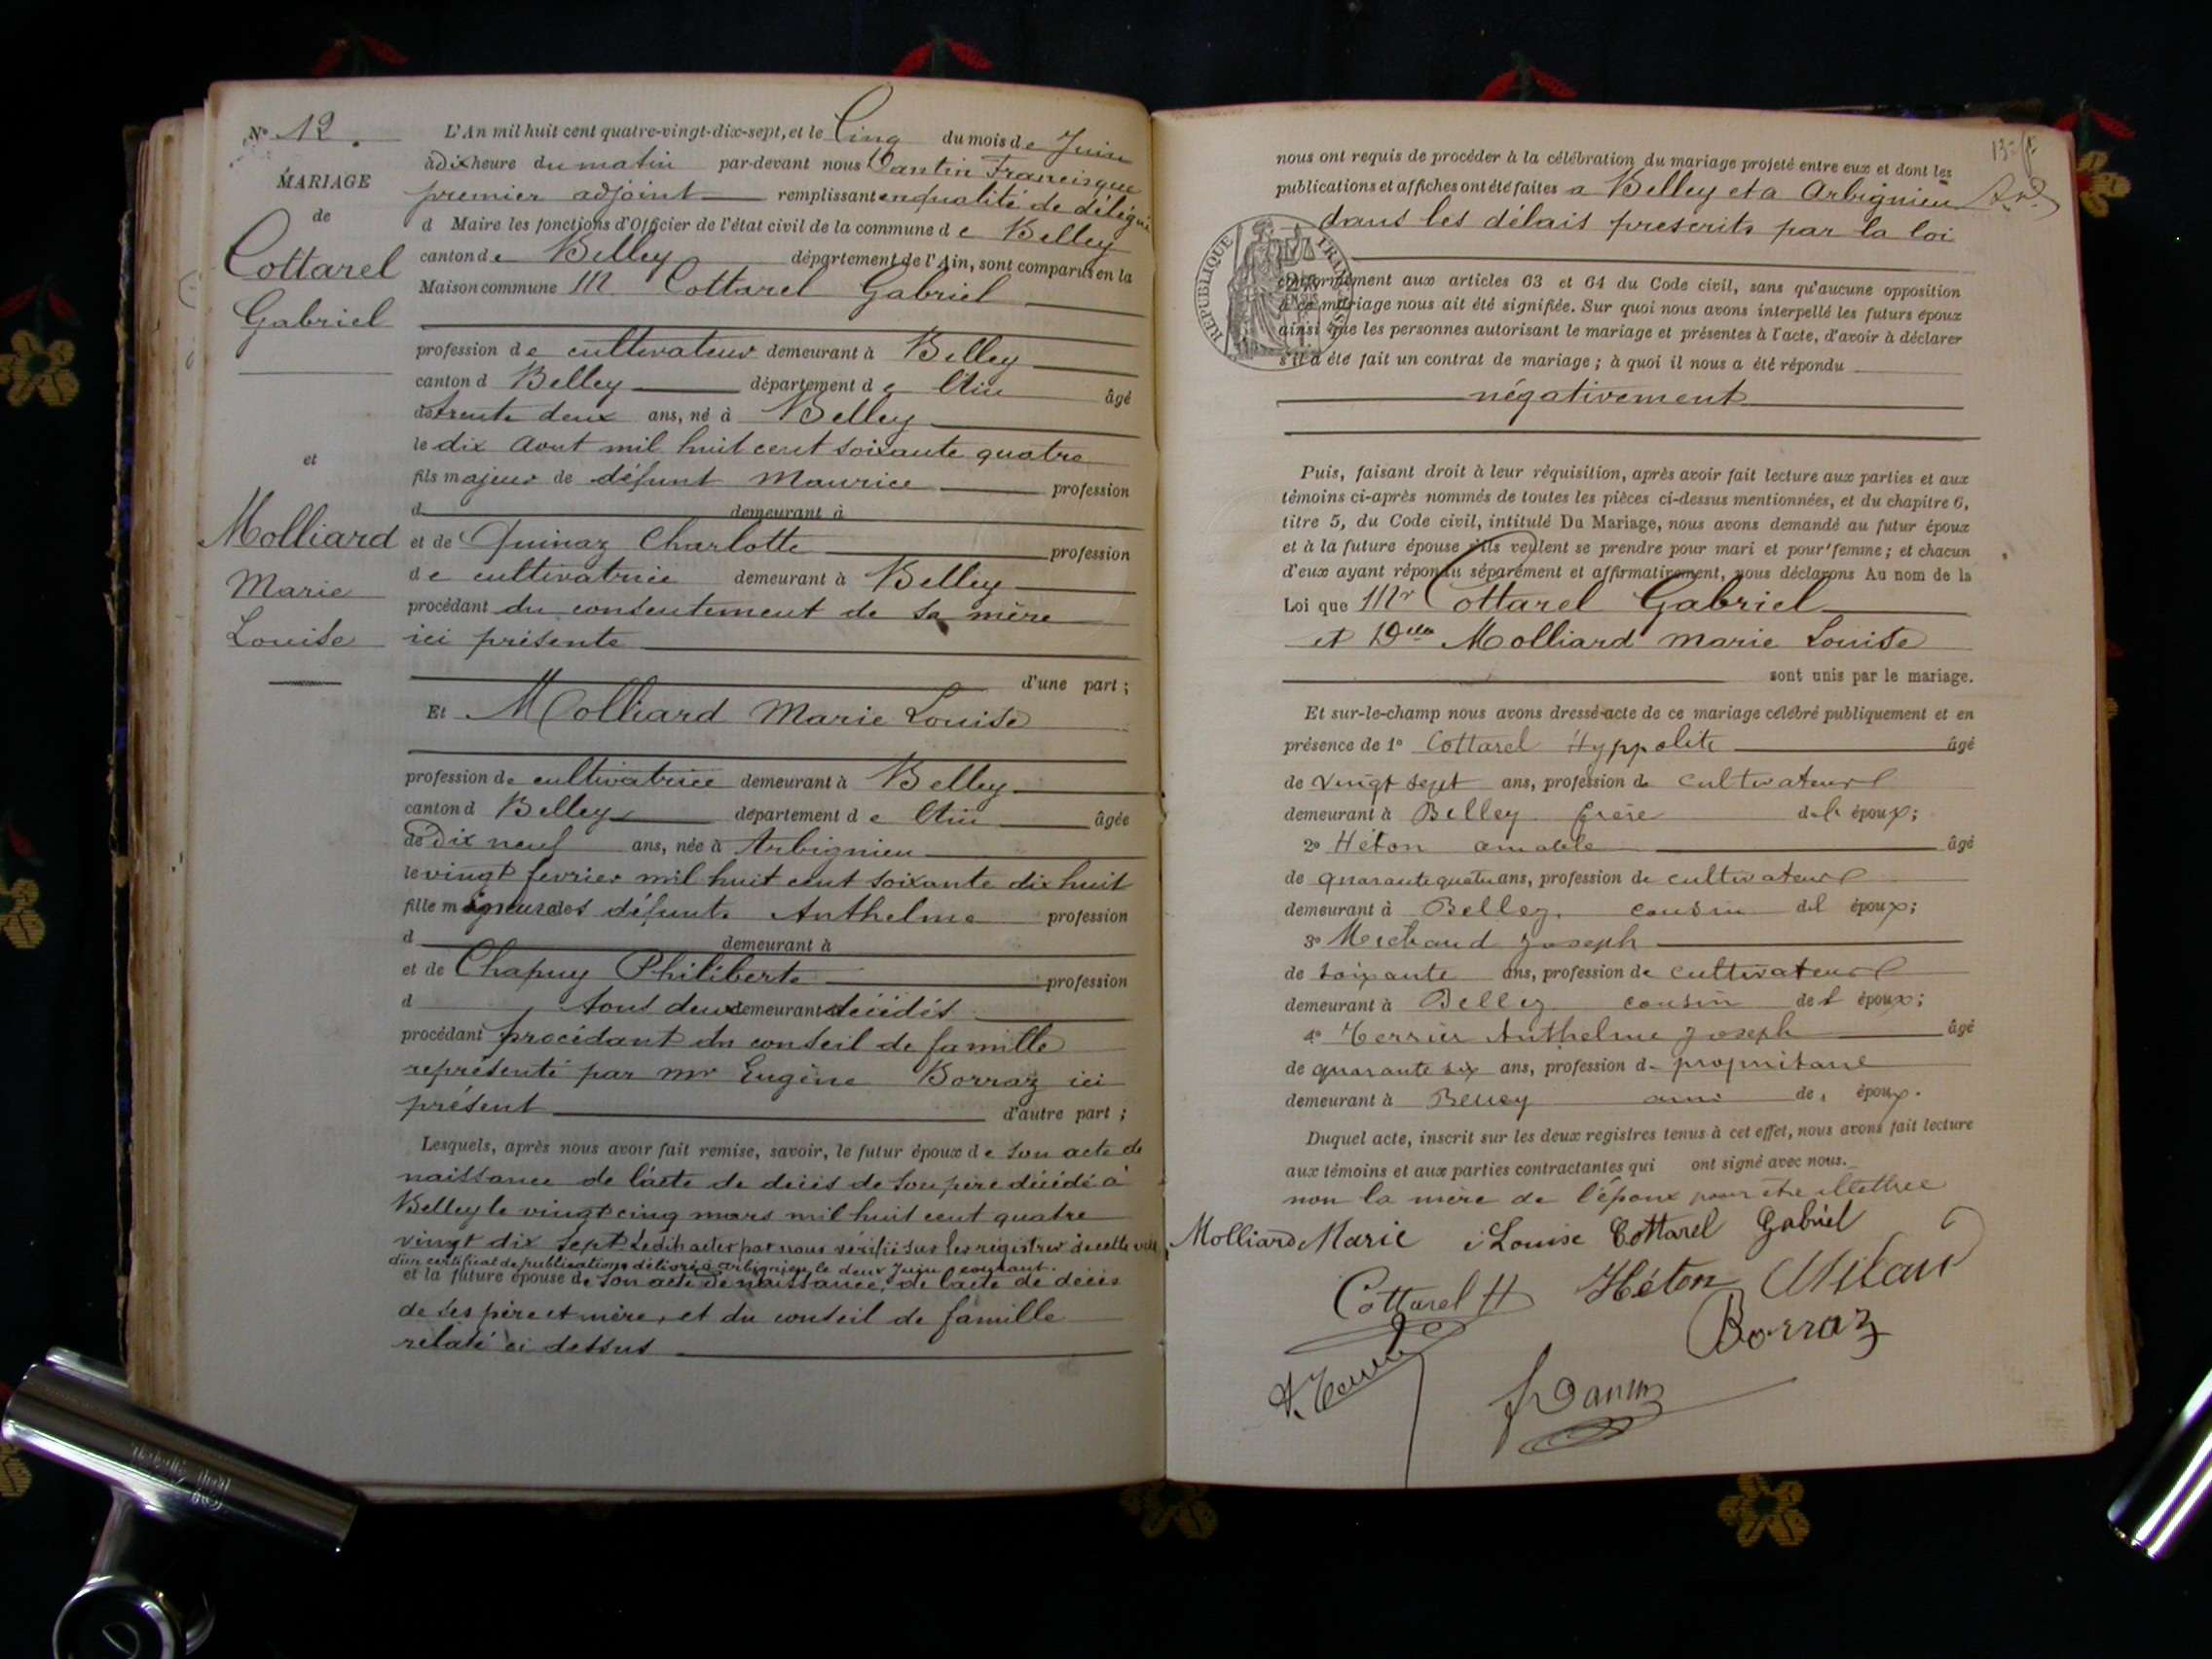 N° 12.
MARIAGE
de
Cottarel
Gabriel
et
Molliard
Marie
Louise
L'An mil huit cent quatre-vingt-dix-sept, et le Cinq du mois de Juin
à dix heure du matin par-devant nous Dantin Francisque
premier adjoint remplissant en qualité de délégué
d Maire les fonctions d'Officier de l'état civil de la commune de Belley
canton de Belley département de l'Ain, sont comparus en la
Maison commune M Cottarel Gabriel
profession de cultivateur demeurant à Belley
canton d Belley département de l'Ain âgé
de trente deux ans, né à Belley
le dix Aout mil huit cent soixante quatre
fils majeur de défunt Maurice profession
d demeurant à
et de Quinaz Charlotte profession
de cultivatrice demeurant à Belley
procédant du consentement de sa mère
ici présente
d'une part ;
Et Molliard Marie Louise
profession de cultivatrice demeurant à Belley
canton d Belley département de l'Ain âgée
de Dix neuf ans, née à Arbignieu
le vingt fevrier mil huit cent soixante dix huit
fille mineure des défunts Anthelme profession
d demeurant à
et de Chapuy Philiberte profession
d tous deux demeurant décédés
procédant procédant du conseil de famille
représenté par Mr Eugène Borraz ici
présent d'autre part ;
Lesquels, après nous avoir fait remise, savoir, le futur époux de son acte de
naissance de l'acte de décès de son père décédé à
Belley le vingt cinq mars mil huit cent quatre
vingt dix sept. Lesdits actes par nous vérifiés sur les registres de cette ville
d'un certificat de publications délivré à Arbignieu le deux Juin courant.
et la future épouse de son acte de naissance, de l'acte de décès
de ses père et mère, et du conseil de famille
relaté ci dessus
nous ont requis de procéder à la célébration du mariage projeté entre eux et dont les
publications et affiches ont été faites a Belley et a Arbignieu
dans les délais prescrits par la loi
RÉPUBLIQUE FRANÇAISE
conformément aux articles 63 et 64 du Code civil, sans qu'aucune opposition
à ce mariage nous ait été signifiée. Sur quoi nous avons interpellé les futurs époux
ainsi que les personnes autorisant le mariage et présentes à l'acte, d'avoir à déclarer
s'il a été fait un contrat de mariage ; à quoi il nous a été répondu
négativement
Puis, faisant droit à leur réquisition, après avoir fait lecture aux parties et aux
témoins ci-après nommés de toutes les pièces ci-dessus mentionnées, et du chapitre 6,
titre 5, du Code civil, intitulé Du Mariage, nous avons demandé au futur époux
et à la future épouse s'ils veulent se prendre pour mari et pour femme ; et chacun
d'eux ayant répondu séparément et affirmativement, nous déclarons Au nom de la
Loi que Mr Cottarel Gabriel
et Delle Molliard Marie Louise
sont unis par le mariage.
Et sur-le-champ nous avons dressé acte de ce mariage célébré publiquement et en
présence de 1° Cottarel Hyppolite âgé
de vingt sept ans, profession de cultivateur
demeurant à Belley frère de l' époux ;
2° Héton amable âgé
de quarante quatre ans, profession de cultivateur
demeurant à Belley cousin de l époux ;
3° Michaud Joseph
de soixante ans, profession de cultivateur
demeurant à Belley cousin de l époux ;
4° Terrier Anthelme Joseph âgé
de quarante six ans, profession de propriétaire
demeurant à Belley ami de époux.
Duquel acte, inscrit sur les deux registres tenus à cet effet, nous avons fait lecture
aux témoins et aux parties contractantes qui ont signé avec nous.
non la mère de l'époux pour être illettrée
Molliard Marie Louise Cottarel Gabriel
Cottarel H Héton
Borraz